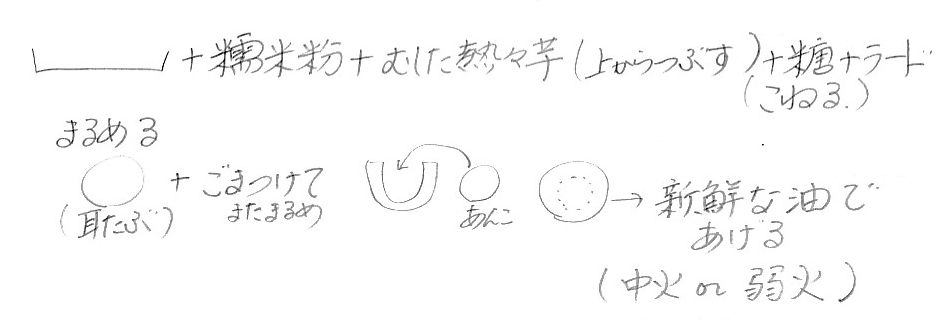 +糯米粉+むした熱々芋(上からつぶす)+糖+ラード
(こねる.)
まるめる
(耳たぶ)
+ごまつけて
またまるめ
あんこ
→新鮮な油で
あげる
(中火 or 弱火)